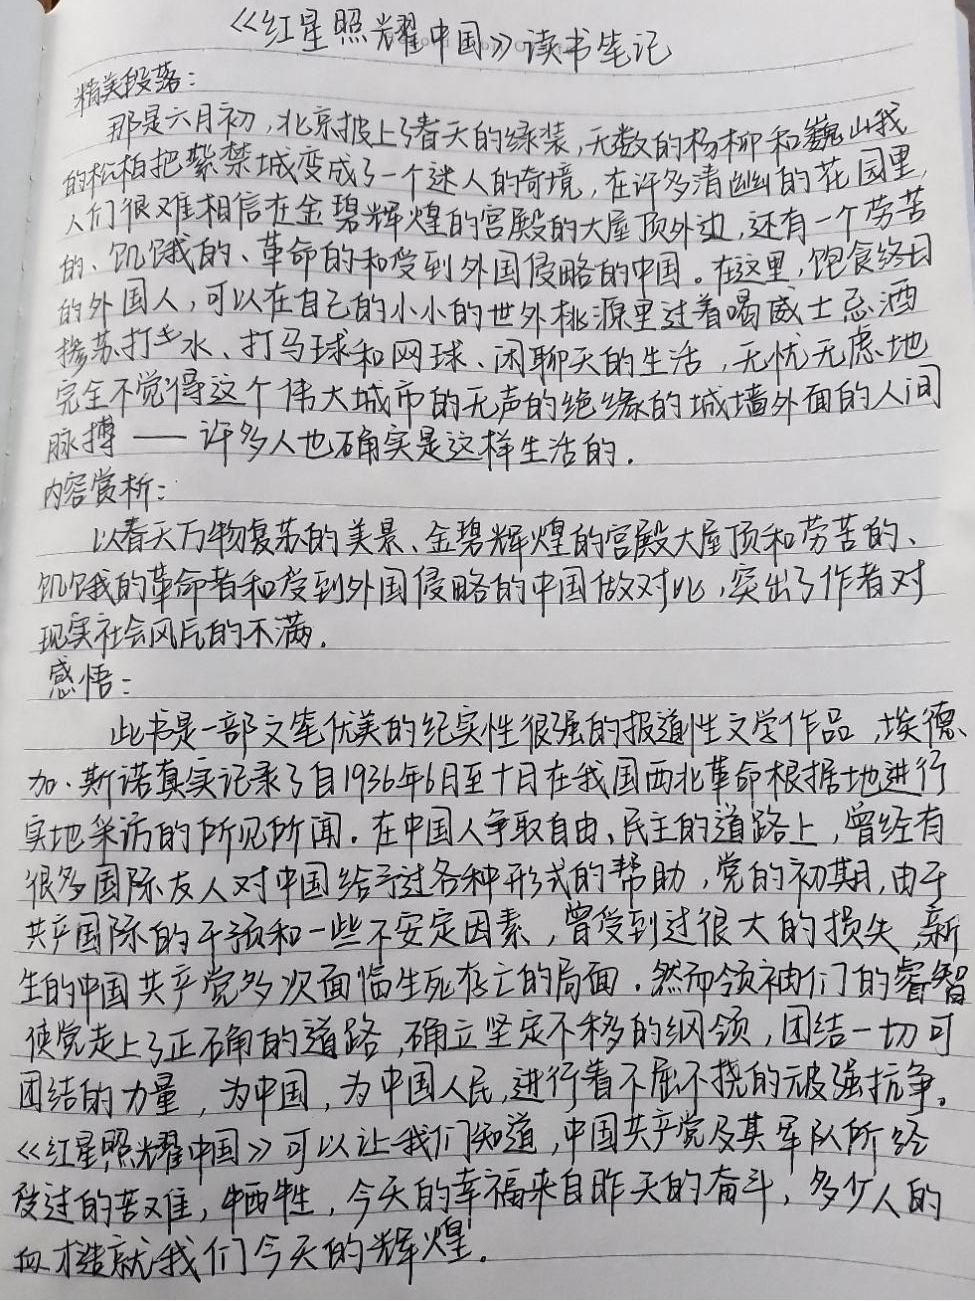 《红星照耀中国》读书笔记
精美段落：
那是六月初,北京披上了春天的绿装,无数的杨柳和巍山我
的松柏把紫禁城变成了一个迷人的奇境,在许多清幽的花园里,
人们很难相信在金碧辉煌的宫殿的大屋顶外边,还有一个劳苦
的、饥饿的、革命的和受到外国侵略的中国。在这里,饱食终日
的外国人,可以在自己的小小的世外桃源里过着喝威士忌酒
掺苏打水、打马球和网球、闲聊天的生活,无忧无虑地
完全不觉得这个伟大城市的无声的绝缘的城墙外面的人间
脉搏——许多人也确实是这样生活的.
内容赏析：
以春天万物复苏的美景、金碧辉煌的宫殿大屋顶和劳苦的、
饥饿的革命者和受到外国侵略的中国做对比,突出了作者对
现实社会风气的不满.
感悟：
此书是一部文笔优美的纪实性很强的报道性文学作品,埃德
加·斯诺真实记录了自1936年6月至十月在我国西北革命根据地进行
实地采访的所见所闻.在中国人争取自由、民主的道路上,曾经有
很多国际友人对中国给予过各种形式的帮助,党的初期,由于
共产国际的干预和一些不安定因素,曾受到过很大的损失,新
生的中国共产党多次面临生死存亡的局面.然而领袖们的睿智
使党走上了正确的道路,确立坚定不移的纲领,团结一切可
团结的力量,为中国,为中国人民,进行着不屈不挠的顽强抗争。
《红星照耀中国》可以让我们知道,中国共产党及其军队所经
受过的苦难,牺牲,今天的幸福来自昨天的奋斗,多少人的
血才造就我们今天的辉煌.